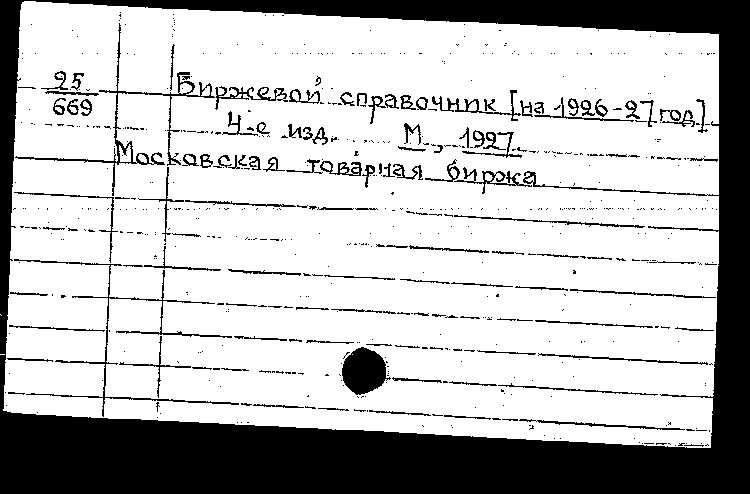 25
669
Биржевой справочник [на 1926-27 год].
4-е изд. М., 1927.
Московская товарная биржа